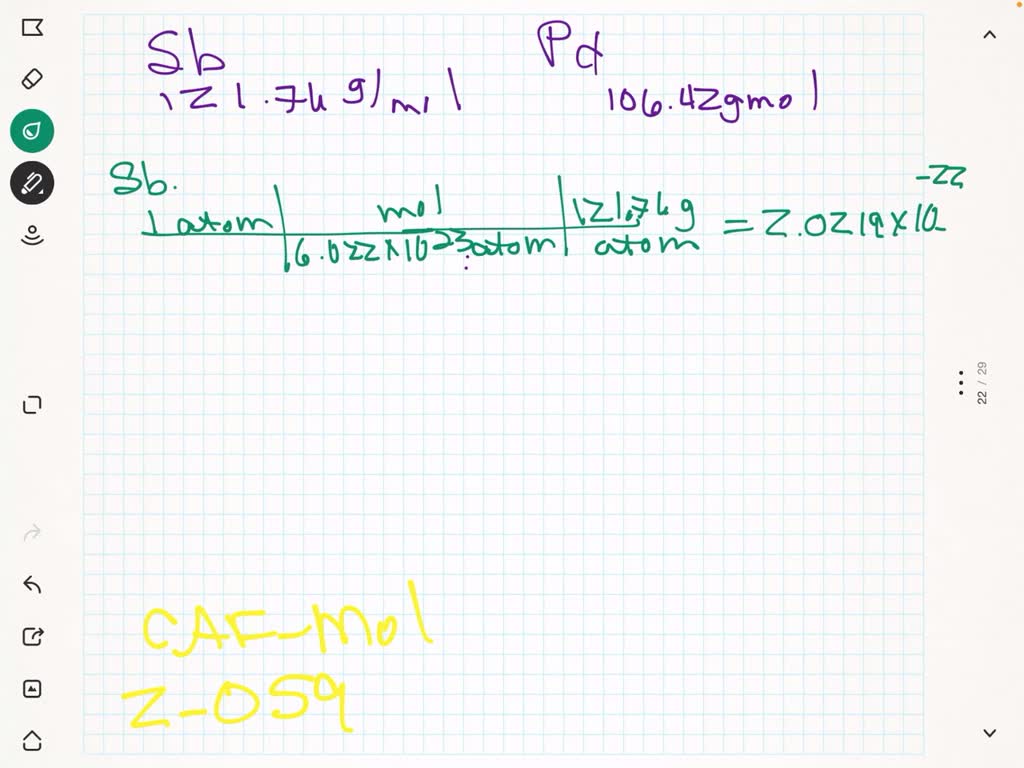 Sb Pd
121.76 g/mol 106.42gmol
Sb.
-22
1 atom mol 121.76 g = 2.0219x10
6.022x10 23 atom atom
22 / 29
CAF-Mol
2-059